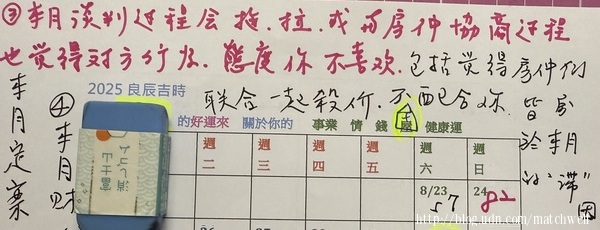 ③本月谈判过程会拖、拉.我与房仲协商过程
也觉得对方行为、態度你不喜欢.包括觉得房仲们
联合一起殺价.不配合你.
皆屬
於本月
的"滯"因
本月定案
④本月財
2025 良辰吉時
的好運來 關於你的 事業 情 錢 屋 健康運
週 週 週 週 週 週
二 三 四 五 六 日
8/23 24
57 82
http://blog.udn.com/matchwell